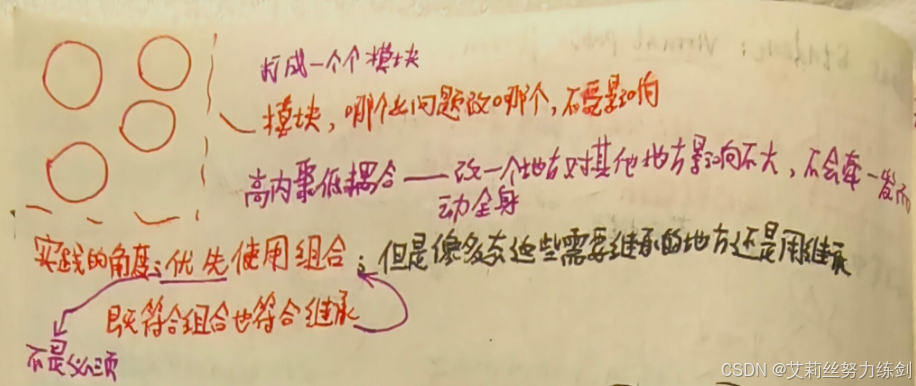 打成一个个模块
模块，哪个出问题改哪个，不受影响
高内聚低耦合——改一个地方对其他地方影响不大，不会牵一发而
动全身
实践的角度：优先使用组合；但是像多态这些需要继承的地方还是用继承
既符合组合也符合继承
不是必须
CSDN @艾莉丝努力练剑